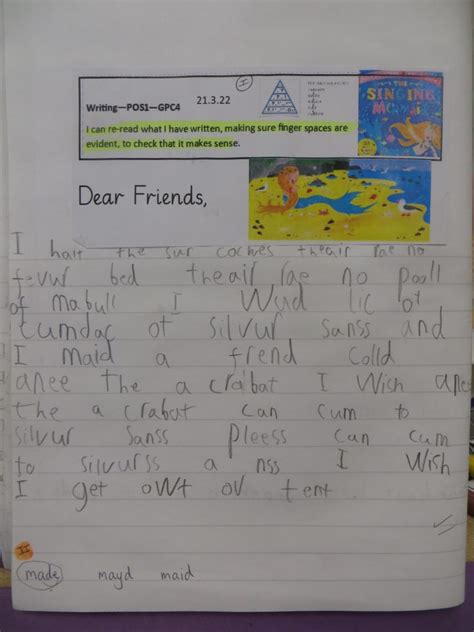 Writing—POS1—GPC4 21.3.22 I
I can re-read what I have written, making sure finger spaces are
evident, to check that it makes sense.
THE
SINGING
Dear Friends,
I hait the sur cockes theair rae no
fevur bed theair rae no pooll
of mabull I Wud lic ot
cumdac ot silvur sanss and
I maid a frend colld
anee the a crabat I Wish anee
the a crabat can cum to
silvur sanss pleess can cum
to silvurss a nss I Wish
I get owt ov tent.
II
made mayd maid